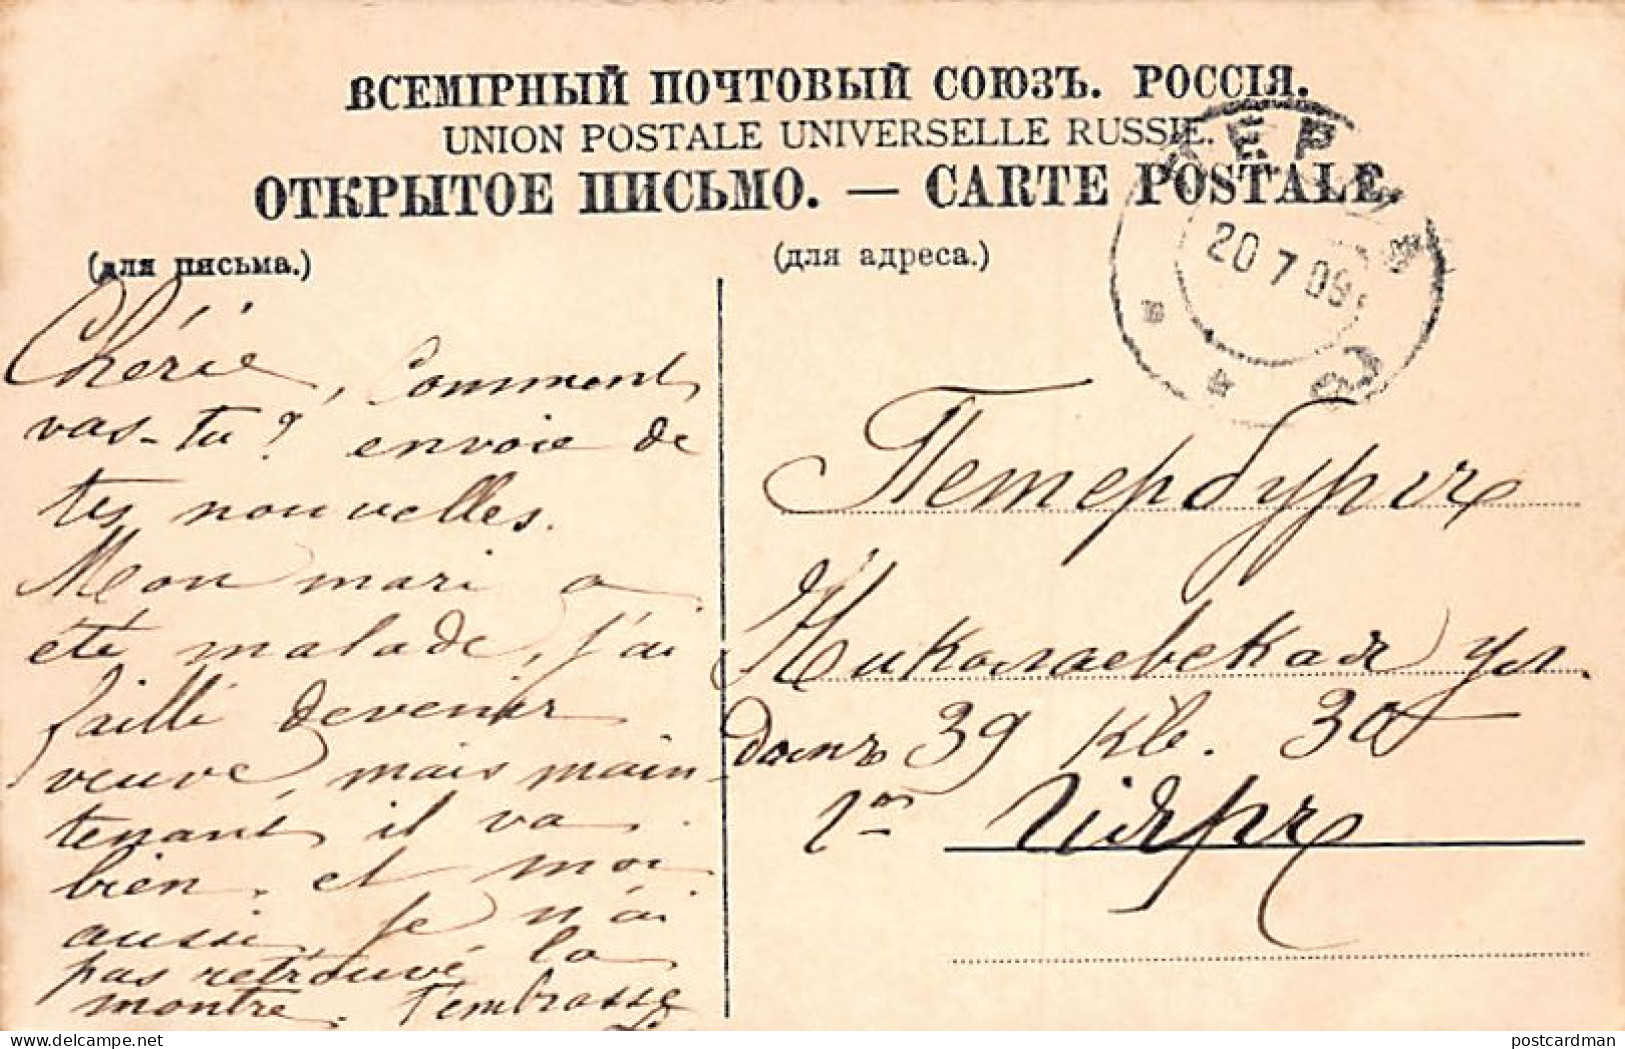 ВСЕМІРНЫЙ ПОЧТОВЫЙ СОЮЗЪ. РОССІЯ.
UNION POSTALE UNIVERSELLE RUSSIE.
ОТКРЫТОЕ ПИСЬМО. — CARTE POSTALE.
(для письма.)
(для адреса.)
20 7 09
Chérie, Comment
vas-tu? envoie de
tes nouvelles.
Mon mari a
été malade, j'ai
failli devenir
veuve, mais main
tenant il va
bien. et moi
aussi, je n'ai
pas retrouvé la
montre. t'embrasse
Петербургъ
Николаевская ул.
домъ 39 кв. 30
postcardman.net
postcardman